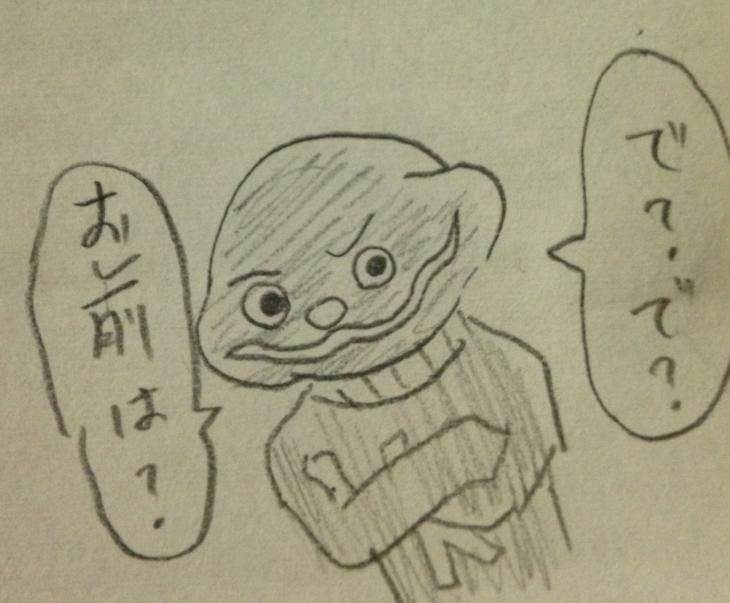 で？で？
お前は？